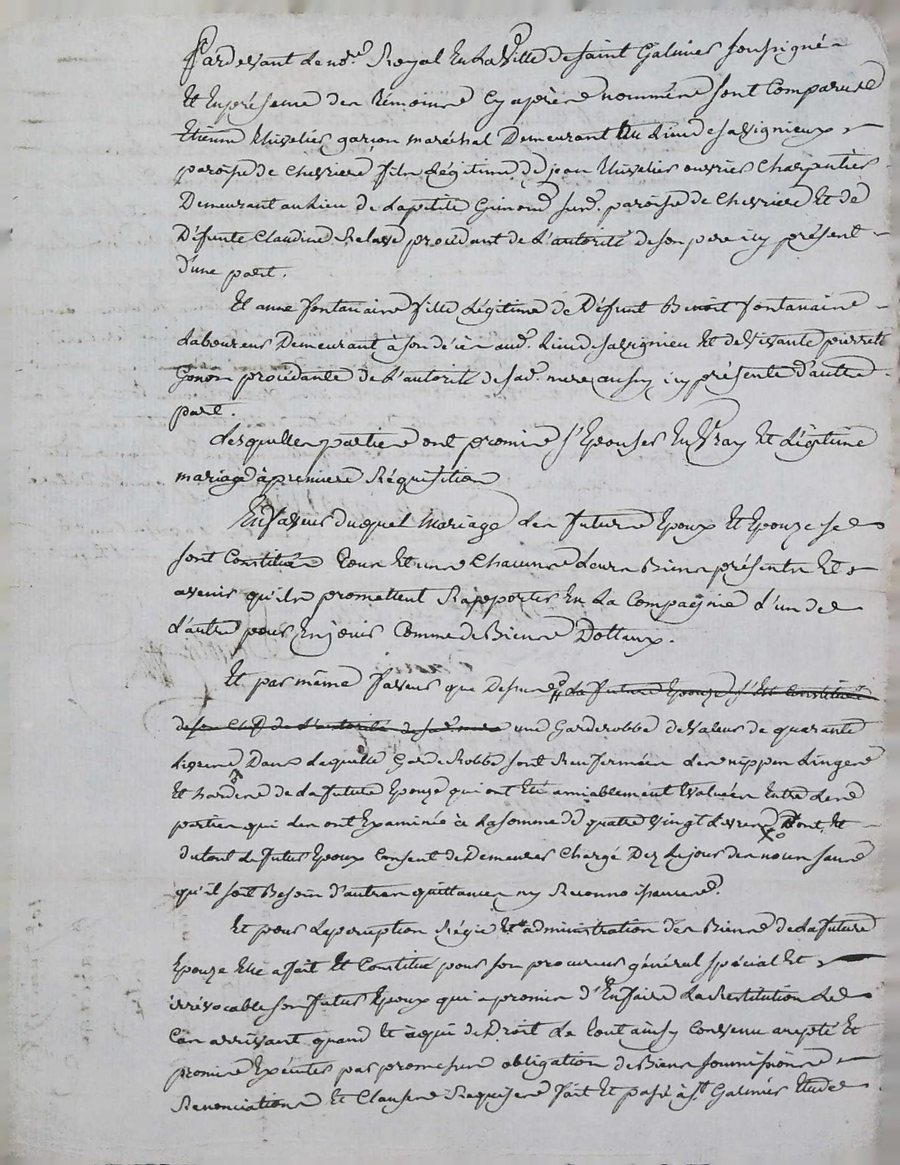 Pardevant Le no.re Royal En La Ville de Saint Galmier soussigné
Et En présence des témoins Cy après nommés sont Comparus
Etienne garçon maréchal Demeurant au Lieu de savignieux
paroisse de Chevriere fils Légitime de jean ouvrier Charpentier
Demeurant au Lieu de Lapetite Gimond sud. paroisse de Chevriere Et de
Défunte Claudine procédant de L'autorité de son pere icy présent
d'une part.
Et anne fontanaire fille Légitime de Défunt Benoit fontanaire
Laboureur Demeurant à son décès aud. Lieu de savignieu Et de Vivante pierrette
Gonon procédante de L'autorité de sad. mere aussy icy présente d'autre
part.
Lesquelles parties ont promis s'Epouser En Vray Et Légitime
mariage à premiere Réquisition
En faveur duquel mariage les futurs Epoux Et Epouze se
sont Constitués tous Et uns Chacuns Leurs Biens présents Et
avenir qu'ils promettent Rapporter En La Compagnie L'un de
L'autre pour En jouir Comme de Biens Dottaux.
Et par même faveur que Dessus La future Epouze s'Est Constituée
de son Chef de L'autorité de sad. mere une Garderobbe de Valeur de quarante
Livres Dans Laquelle Garde Robbe sont Renfermées les nippes Linges
Et hardes de La future Epouze qui ont Eté amiablement Evaluées Entre Les
parties qui Les ont Examinés à La somme de quatre Vingt Livres Dont Et
du tout Le futur Epoux Consent de Demeurer Chargé Dez Le jour des noces sans
qu'il soit Besoin d'autres quittances ny Reconnoissances.
Et pour La perception Régie Et administration des Biens de La future
Epouze Elle a fait Et Constitué pour son procureur général spécial Et
irrévocable son futur Epoux qui a promis d'En faire La Restitution Le
Cas arrivant quand Et à qui de Droit Le tout ainsy Convenu accepté Et
promis Exécuter par promesses obligation de Biens soumissions
Renonciations Et Clauses Requises fait Et passé à St. Galmier Etude